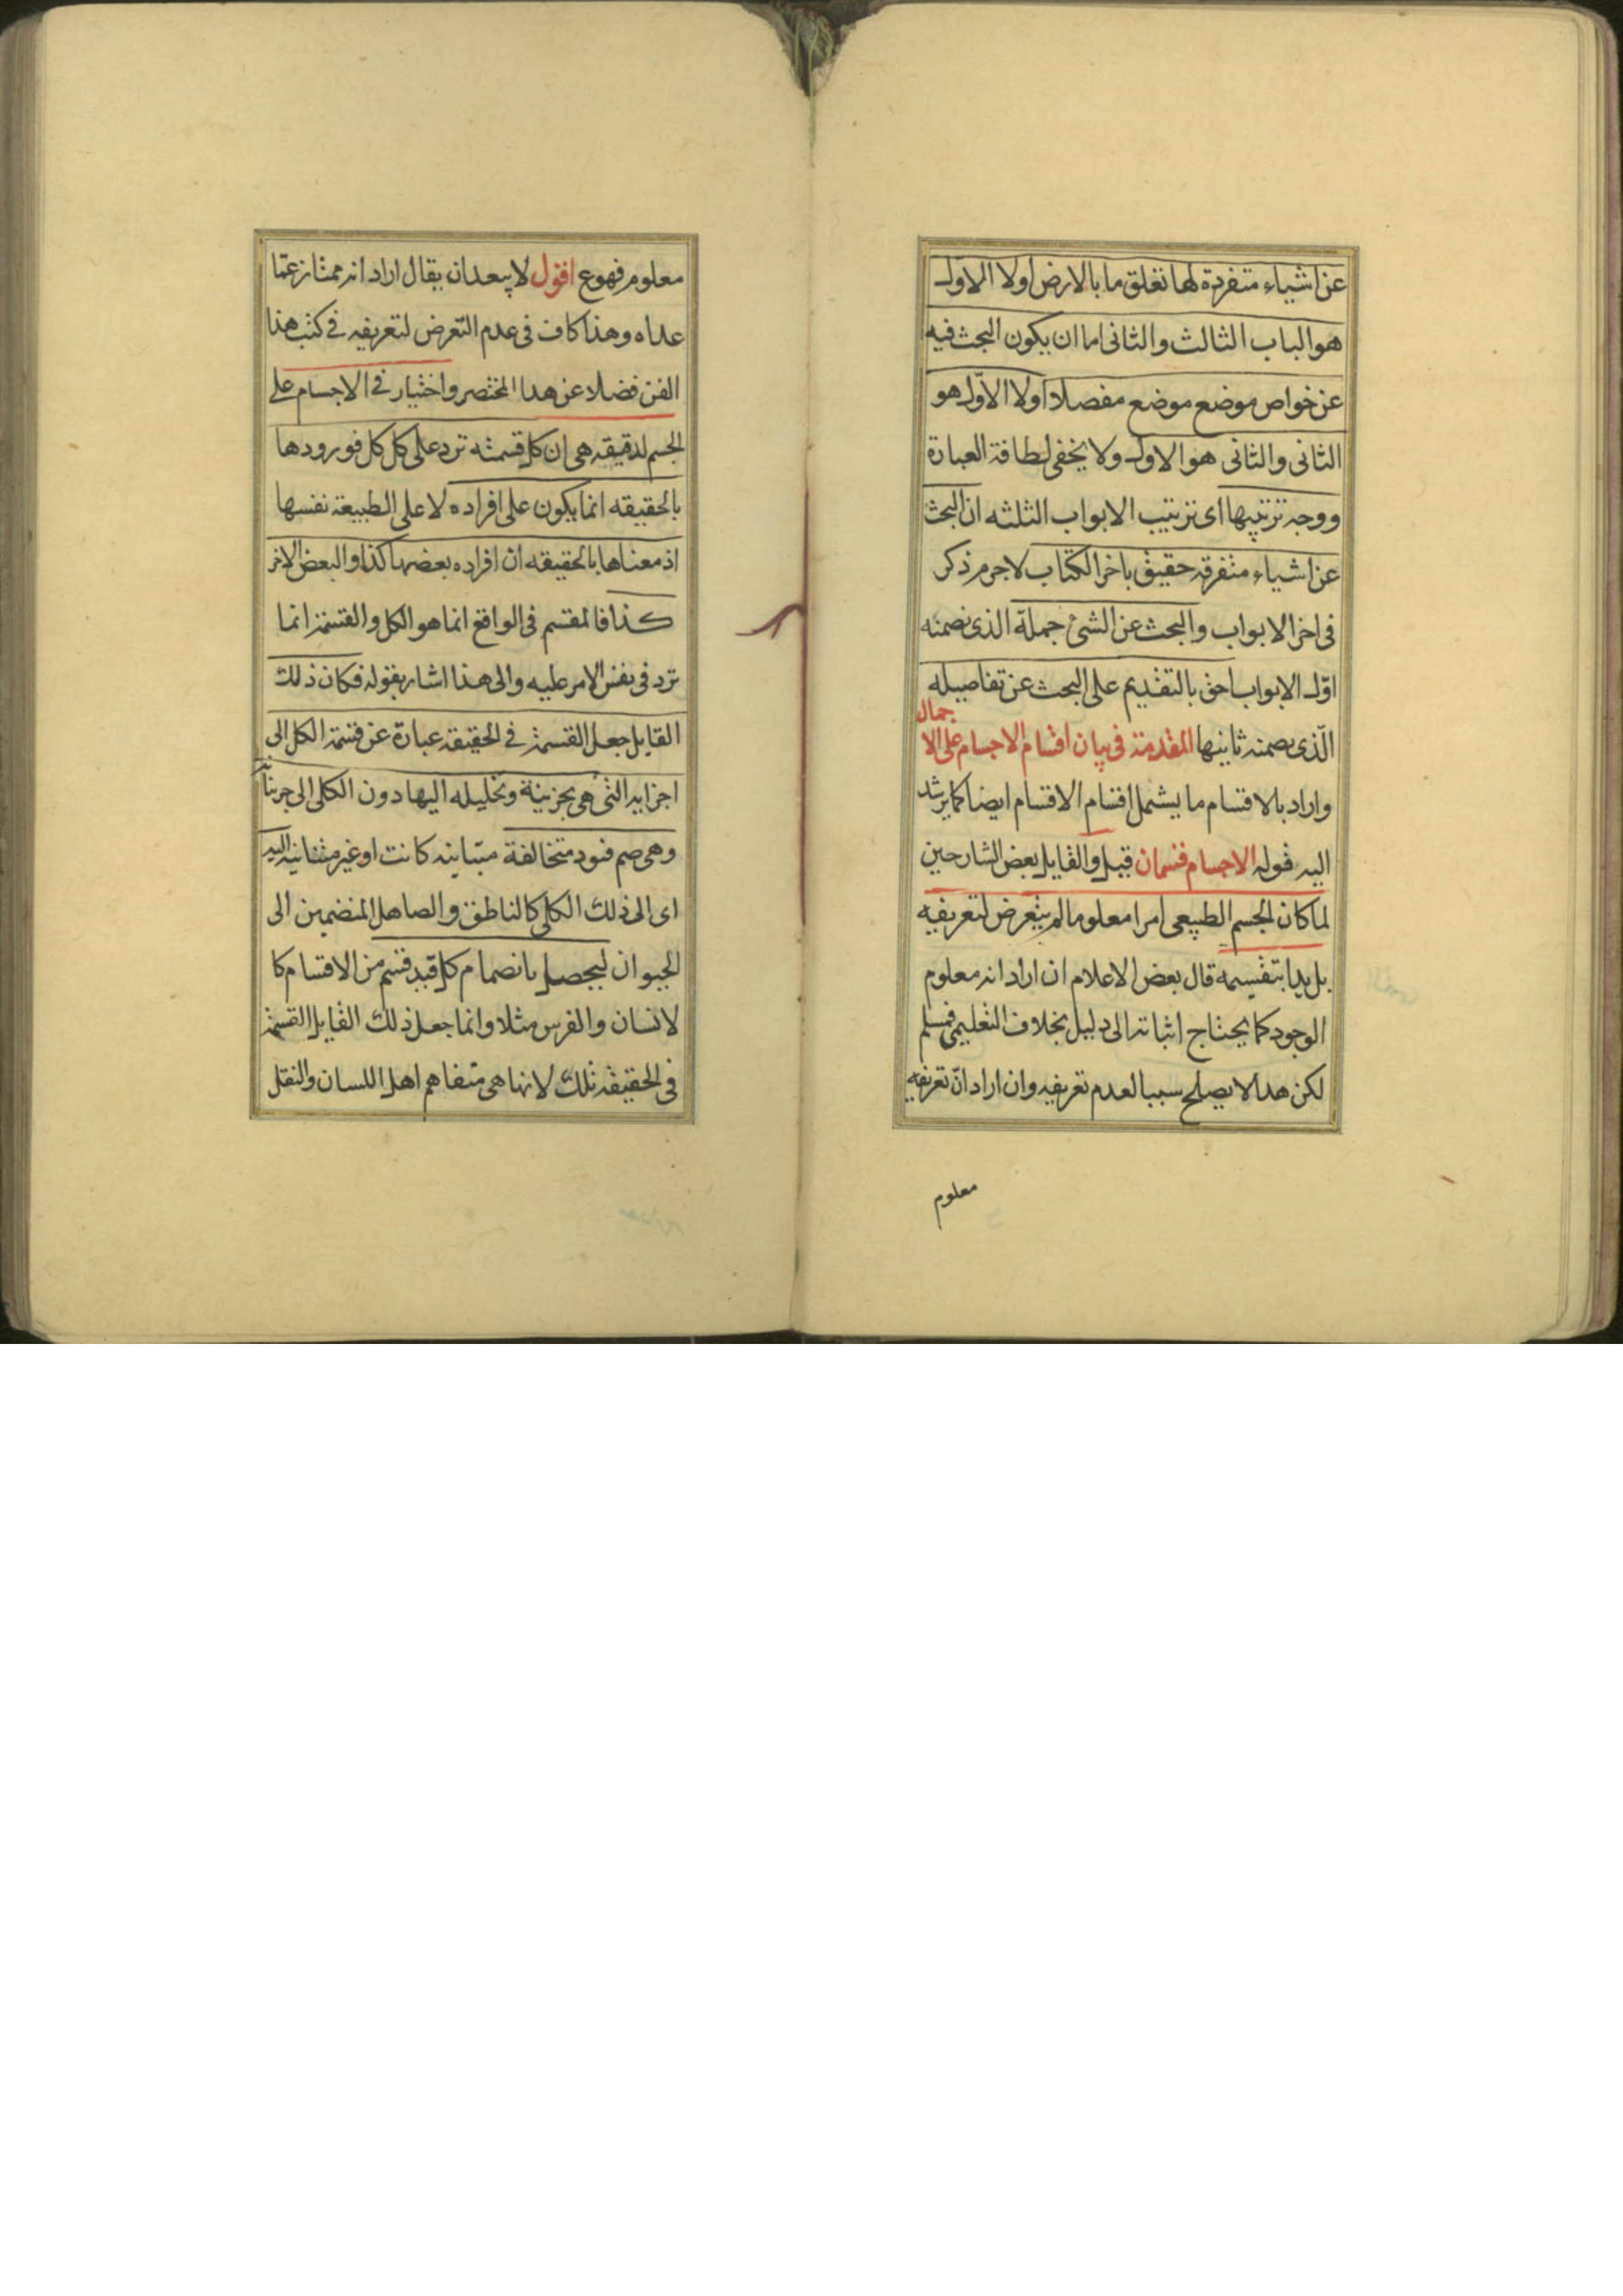 عن اشياء متفرقة لها تعلق ما بالارض اولا الاول
هو الباب الثالث والثانى اما ان يكون البحث فيه
عن خواص موضع موضع مفصلا اولا الاول هو
الثانى والثانى هو الاول ولا يخفى لطافة العبارة
ووجه ترتيبها اى ترتيب الابواب الثلثه ان البحث
عن اشياء متفرقه حقيق باخر الكتاب لاجرم ذكر
فى اخر الابواب والبحث عن الشئ جملة الذى تضمنه
اول الابواب احق بالتقديم على البحث عن تفاصيله
الذى تضمنه ثانيها المقدمة فى بيان اقسام الاجسام على الا
جمال
واراد بالاقسام ما يشمل اقسام الاقسام ايضا كما يرشد
اليه قوله الاجسام قسمان قيل والقايل بعض الشارحين
لما كان الجسم الطبيعى امرا معلوما لم يتعرض لتعريفه
بل بدا بتقسيمه قال بعض الاعلام ان اراد انه معلوم
الوجود كما يحتاج اثباته الى دليل بخلاف التعليمى فمسلم
لكن هدا لا يصلح سببا لعدم تعريفه وان اراد ان تعريفه
معلوم
معلوم فهوع اقول لا يبعد ان يقال اراد انه ممتاز عما
عداه وهذا كاف فى عدم التعرض لتعريفه فى كتب هذا
الفن فضلا عن هدا المختصر واختيار فى الاجسام على
الجسم لدقيقه هى ان كل قسمته ترد على كل كل فورودها
بالحقيقه انما يكون على افراده لا على الطبيعة نفسها
اذ معناها بالحقيقه ان افراده بعضها كذا والبعض الاخر
كذا فالمقسم فى الواقع انما هو الكل والقسمة انما
ترد فى نفس الامر عليه والى هذا اشار بقوله فكان ذلك
القايل جعل القسمة فى الحقيقه عبارة عن قسمة الكل الى
اجزايه التى هى بجزيية وتحليله اليها دون الكلى الى جزييا
وهى ضم قيود متخالفة متباينه كانت او غير متباينه اليه
اى الى ذلك الكلى كالناطق والصاهل المنضمين الى
الحيوان ليحصل بانضمام كل قيد قسم من الاقسام كا
لانسان والفرس مثلا وانما جعل ذلك القايل القسمة
فى الحقيقه تلك لانها هى متفاهم اهل اللسان والنقل